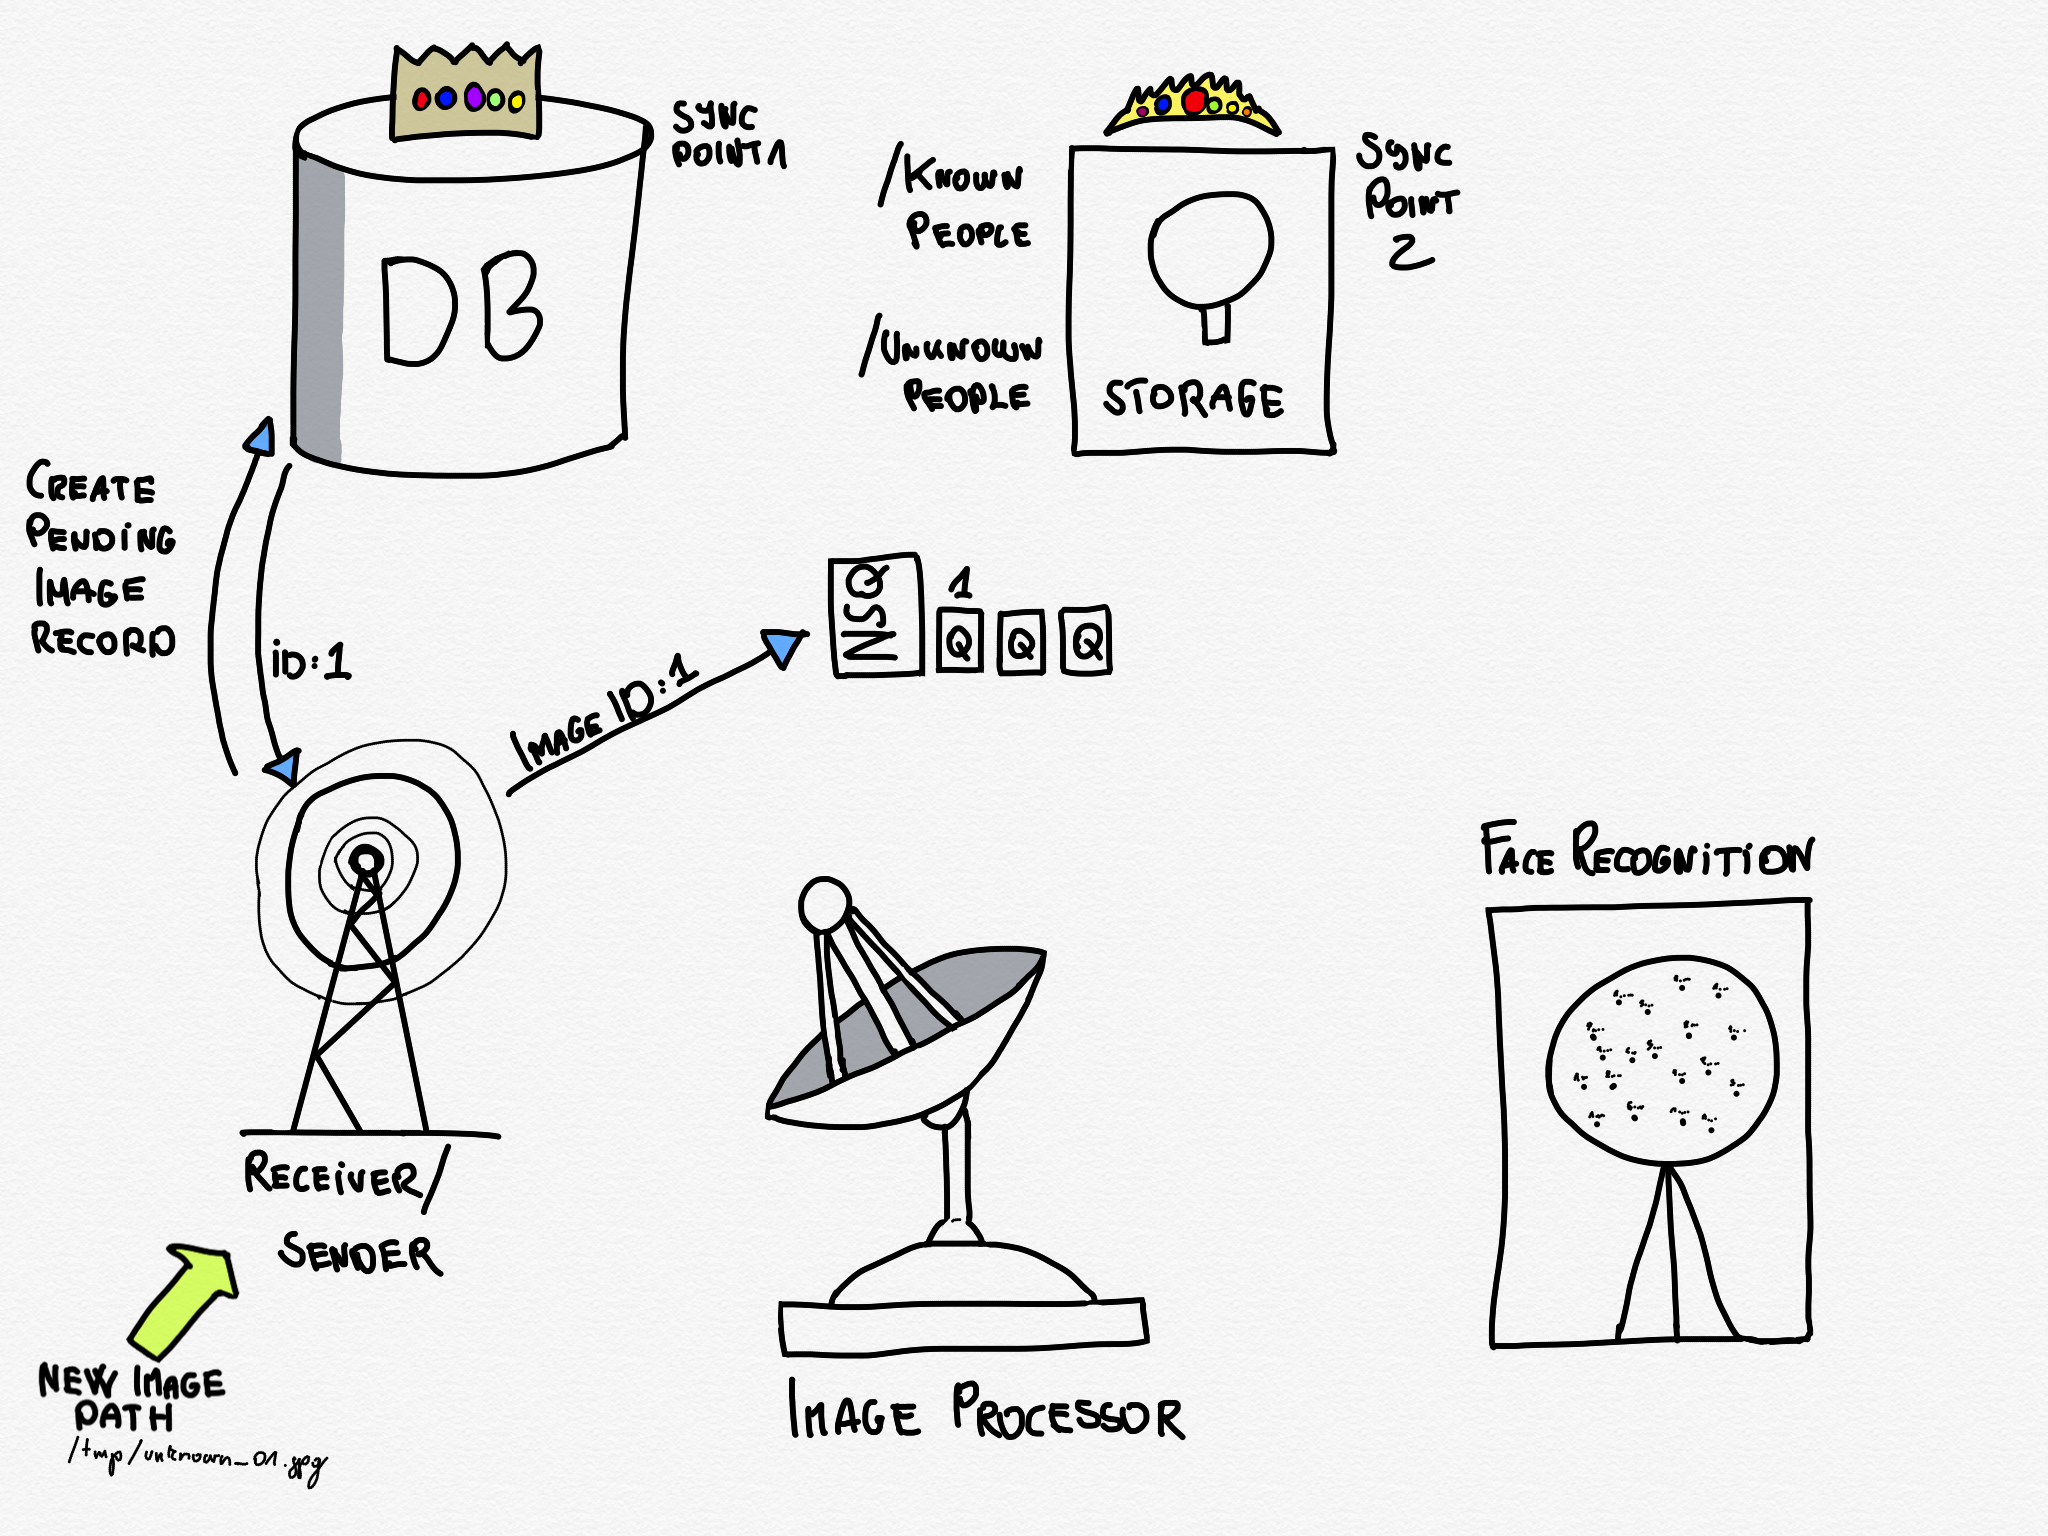 SYNC
POINT 1
DB
/KNOWN
PEOPLE
/UNKNOWN
PEOPLE
STORAGE
SYNC
POINT
2
CREATE
PENDING
IMAGE
RECORD
iD:1
IMAGE ID:1
NSQ
1
Q Q Q
RECEiVER/
SENDER
NEW IMAGE
PATH
/tmp/unknown_01.jpg
IMAGE PROCESSOR
FACE RECOGNiTiON